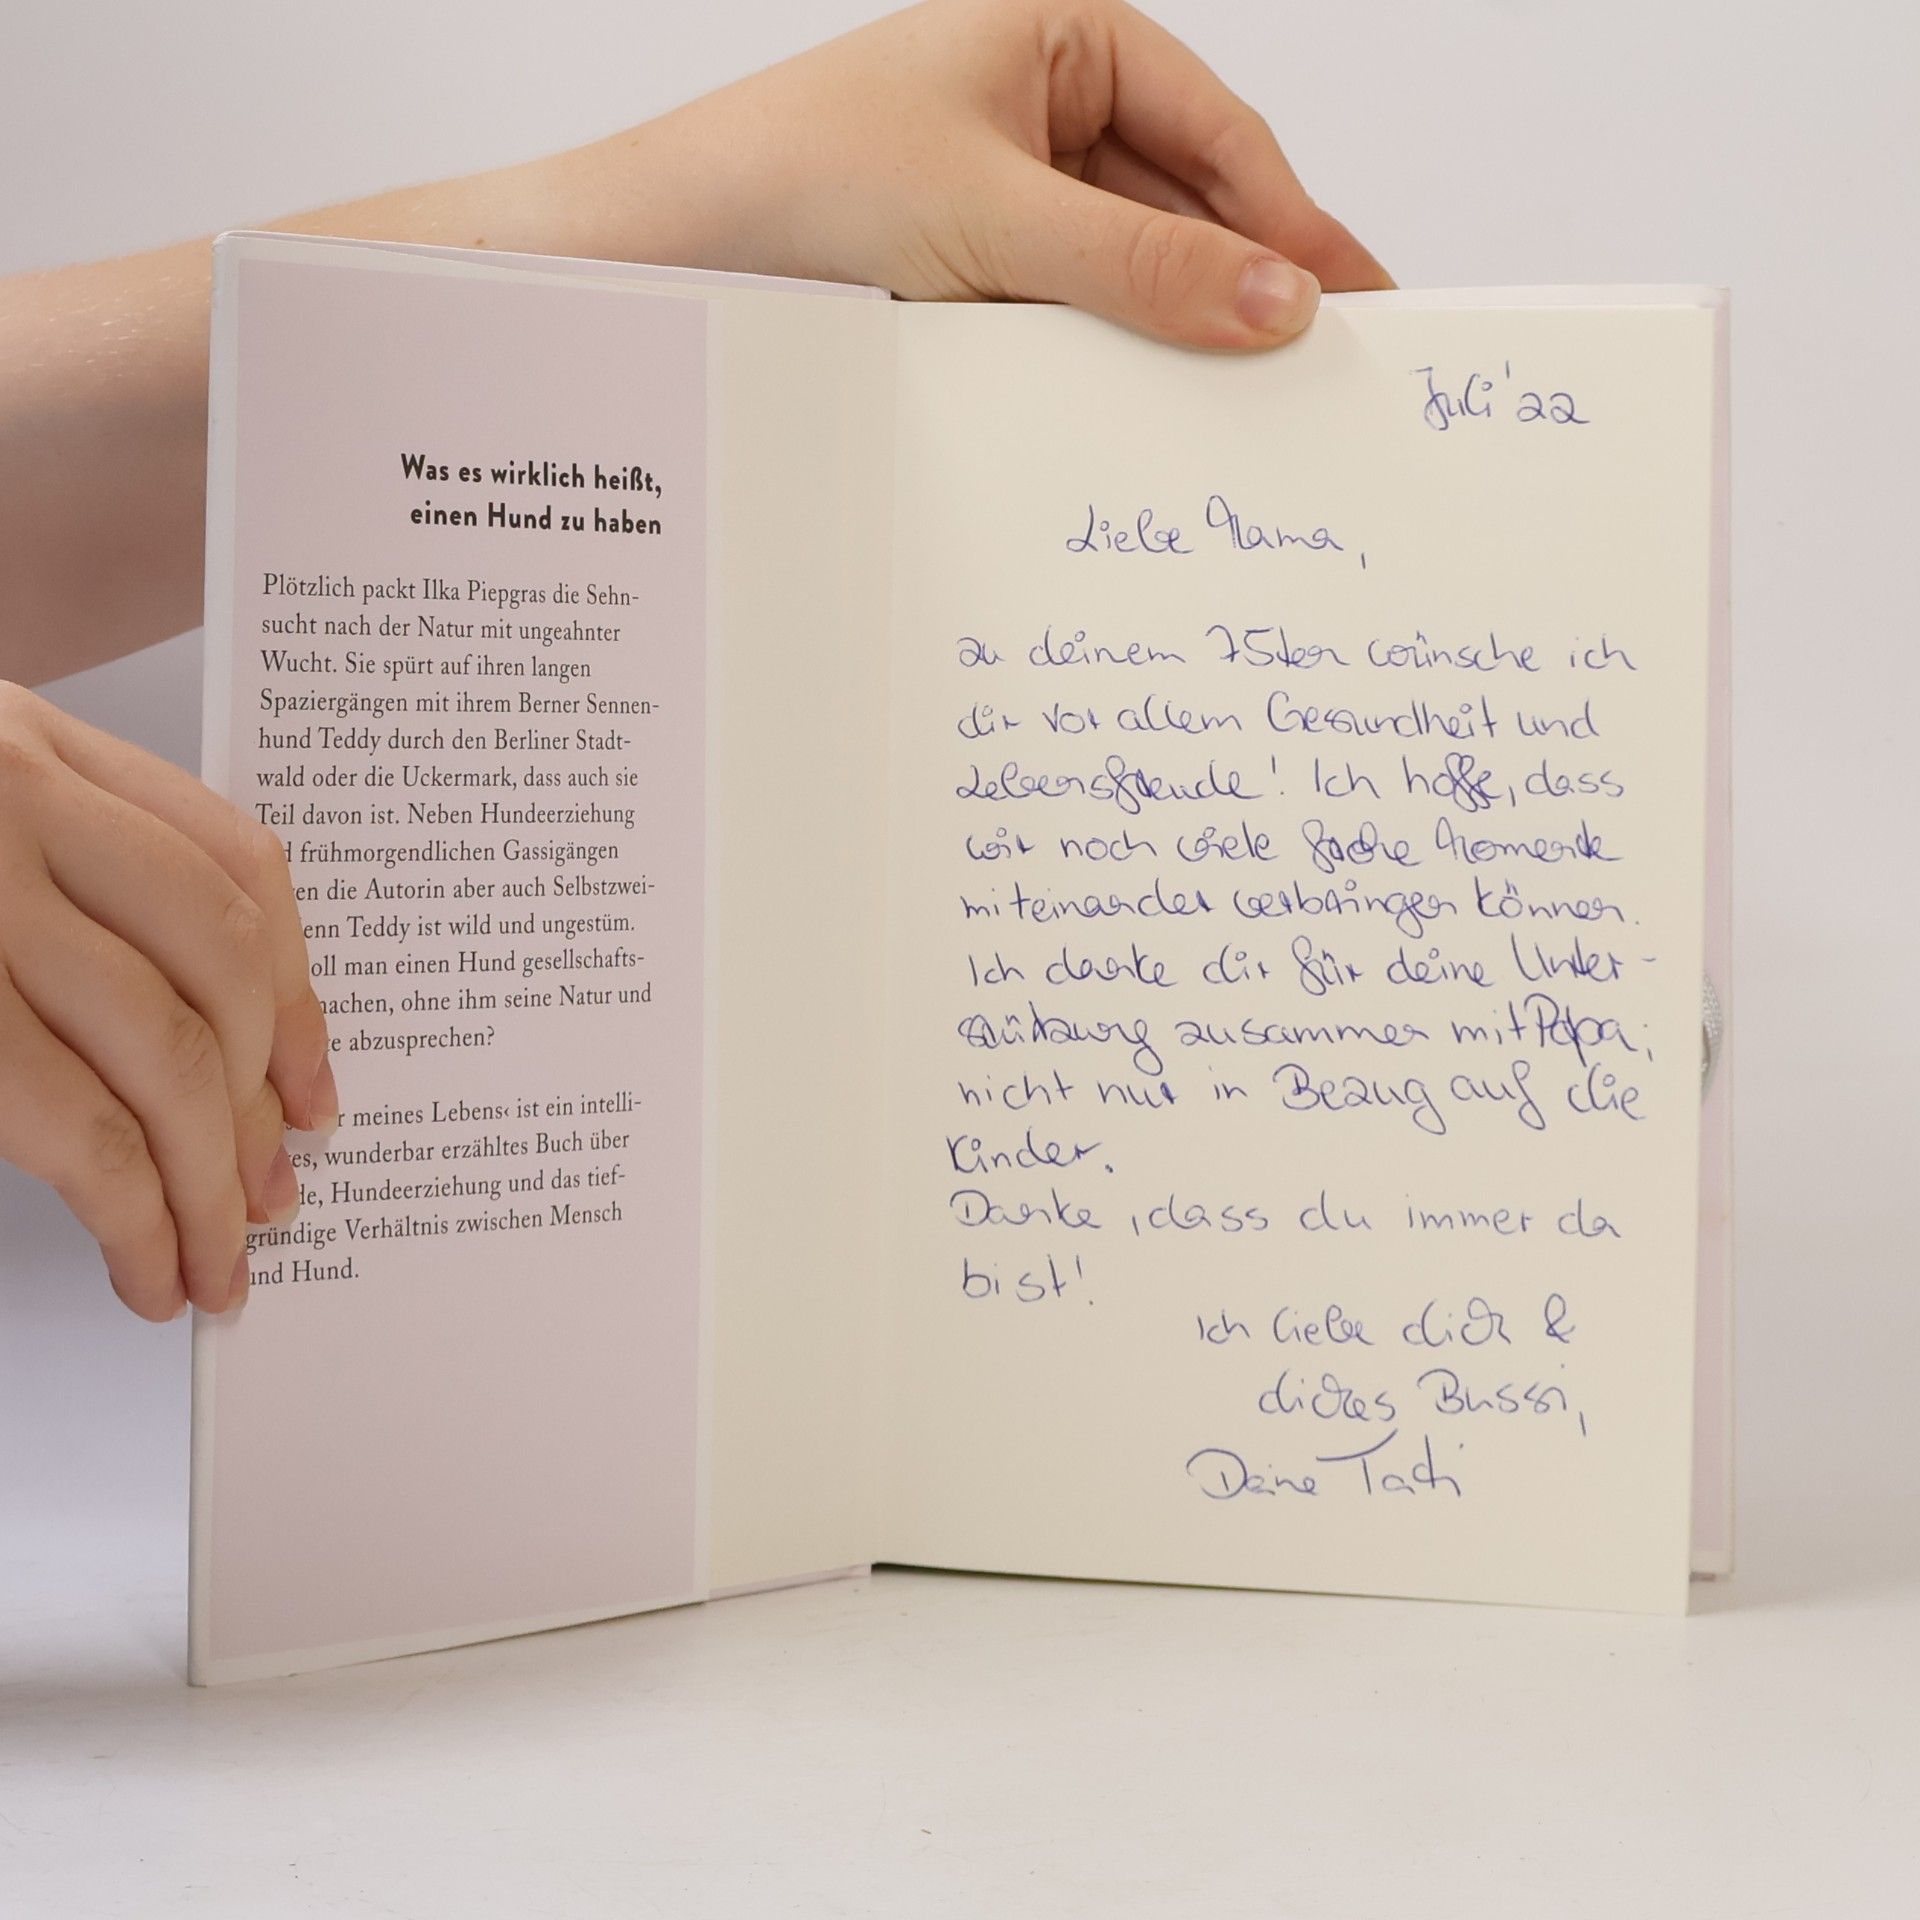 Was es wirklich heißt,
einen Hund zu haben
Plötzlich packt Ilka Piepgras die Sehn-
sucht nach der Natur mit ungeahnter
Wucht. Sie spürt auf ihren langen
Spaziergängen mit ihrem Berner Sennen-
hund Teddy durch den Berliner Stadt-
wald oder die Uckermark, dass auch sie
Teil davon ist. Neben Hundeerziehung
frühmorgendlichen Gassigängen
die Autorin aber auch Selbstzwei-
Teddy ist wild und ungestüm.
man einen Hund gesellschafts-
ohne ihm seine Natur und
abzusprechen?
meines Lebens‹ ist ein intelli-
wunderbar erzähltes Buch über
Hundeerziehung und das tief-
gründige Verhältnis zwischen Mensch
und Hund.
Juli '22
Liebe Mama,
zu deinem 75ten wünsche ich
dir vor allem Gesundheit und
Lebensfreude! Ich hoffe, dass
wir noch viele frohe Momente
miteinander verbringen können.
Ich danke dir für deine Unter-
stützung zusammen mit Papa;
nicht nur in Bezug auf die
Kinder.
Danke, dass du immer da
bist!
Ich liebe dich &
dickes Bussi,
Deine